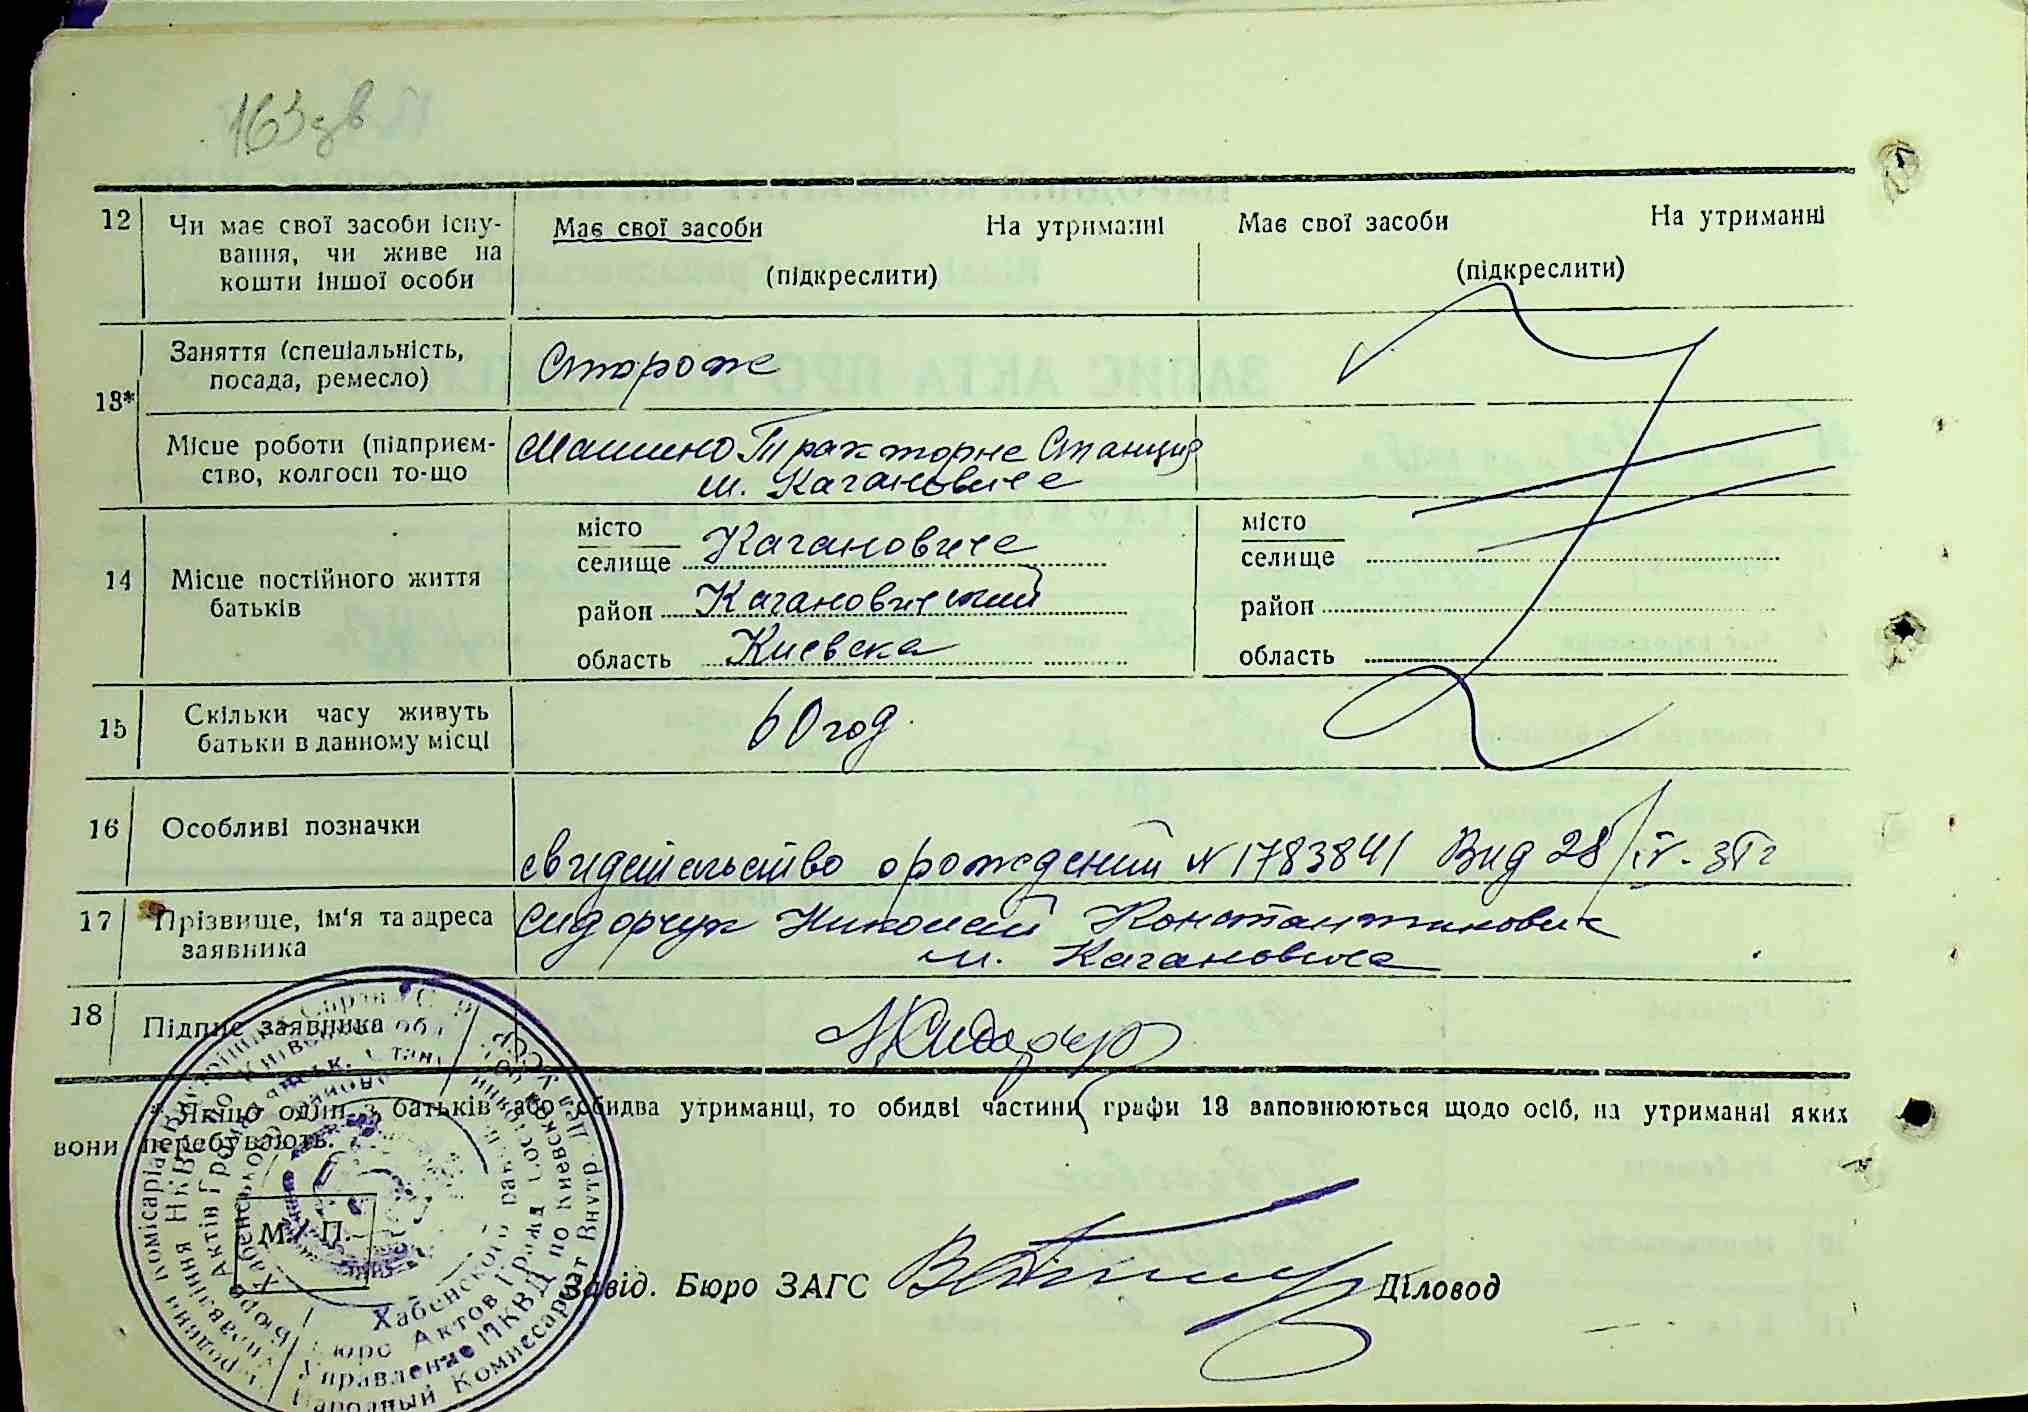 163 зв
12 Чи має свої засоби існу-
вання, чи живе на
кошти іншої особи
Має свої засоби На утриманні
(підкреслити)
Має свої засоби На утриманні
(підкреслити)
13* Заняття (спеціальність,
посада, ремесло)
Сторож
Місце роботи (підприєм-
ство, колгосп то-що
Машино Тракторне Станция
м. Кагановиче
14 Місце постійного життя
батьків
місто
селище Кагановиче
район Кагановический
область Киевска
місто
селище
район
область
15 Скільки часу живуть
батьки в данному місці
60 год.
16 Особливі позначки
свидетельство о рождений N 1783841 Вид 28/IV-35г
17 Прізвище, ім'я та адреса
заявника
Сидорчук Николай Константинович
м. Кагановича
18 Підпис заявника
НСидорчук
* Якщо один з батьків або обидва утриманці, то обидві частини графи 13 заповнюються щодо осіб, на утриманні яких
вони перебувають.
М. П.
Завід. Бюро ЗАГС Діловод
Хабенского
Бюро Актов Гражд. Сост.
Управление НКВД по Киевской обл.
Народный Комиссариат Внутр. Дел УССР